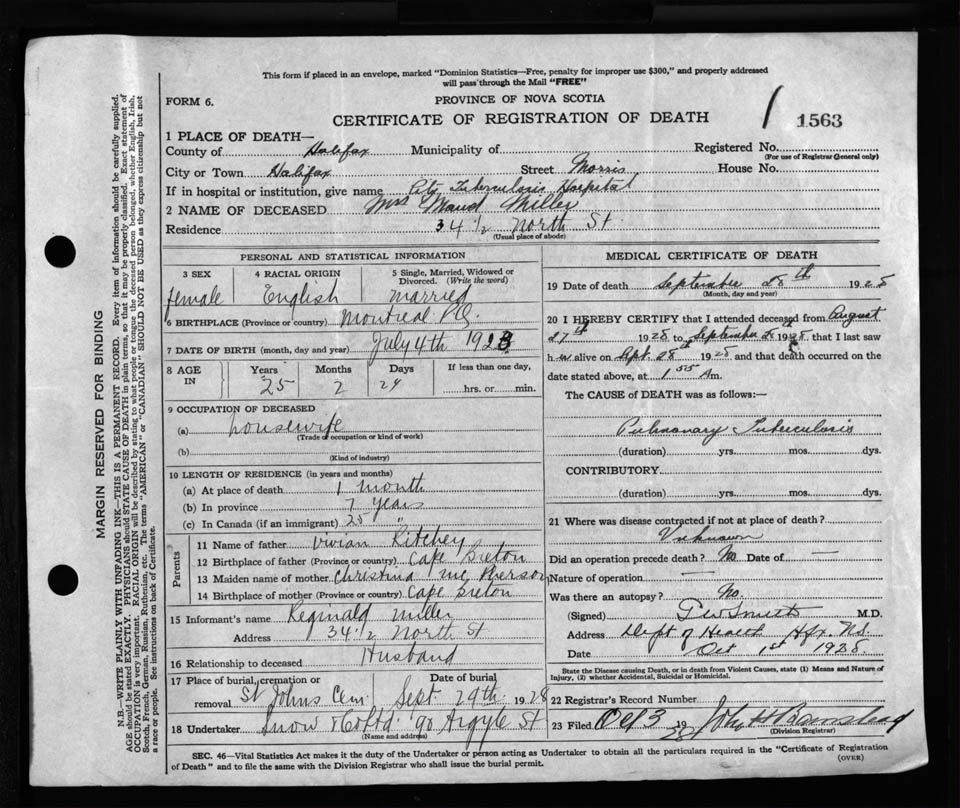 This form if placed in an envelope, marked "Dominion Statistics—Free, penalty for improper use $300," and properly addressed
will pass through the Mail "FREE"
FORM 6.
PROVINCE OF NOVA SCOTIA
CERTIFICATE OF REGISTRATION OF DEATH
1563
1 PLACE OF DEATH—
County of Halifax Municipality of Registered No.
(For use of Registrar General only)
City or Town Halifax Street Morris House No.
If in hospital or institution, give name City Tuberculosis Hospital
2 NAME OF DECEASED Mrs Maud Miller
Residence 34 1/2 North St
(Usual place of abode)
PERSONAL AND STATISTICAL INFORMATION
3 SEX 4 RACIAL ORIGIN 5 Single, Married, Widowed or
Divorced. (Write the word)
female English married
6 BIRTHPLACE (Province or country) Montreal P.Q.
7 DATE OF BIRTH (month, day and year) July 4th
8 AGE IN Years Months Days If less than one day,
25 2 24 hrs. or min.
9 OCCUPATION OF DECEASED
(a) housewife
(Trade or occupation or kind of work)
(b)
(Kind of industry)
10 LENGTH OF RESIDENCE (in years and months)
(a) At place of death 1 month
(b) In province 7 years
(c) In Canada (if an immigrant) 25 "
Parents
11 Name of father Vivian Ritchey
12 Birthplace of father (Province or country) Cape Breton
13 Maiden name of mother Christina McPherson
14 Birthplace of mother (Province or country) Cape Breton
15 Informant's name Reginald Miller
Address 34 1/2 North St
16 Relationship to deceased Husband
17 Place of burial, cremation or removal Date of burial
St Johns Cem Sept 29th 1928
18 Undertaker Snow & Co Ltd 90 Argyle St
(Name and address)
MEDICAL CERTIFICATE OF DEATH
19 Date of death September 28th 1928
(Month, day and year)
20 I HEREBY CERTIFY that I attended deceased from August
27th 1928 to September 28th 1928 that I last saw
h er alive on Sept. 28th 1928 and that death occurred on the
date stated above, at 1.55 Am.
The CAUSE OF DEATH was as follows:—
Pulmonary Tuberculosis
(duration) yrs. mos. dys.
CONTRIBUTORY
(duration) yrs. mos. dys.
21 Where was disease contracted if not at place of death?
Unknown
Did an operation precede death? No Date of —
Nature of operation —
Was there an autopsy? No.
(Signed) M.D.
Address Dept of Health Hfx. N.S.
Date Oct 1st 1928
State the Disease causing Death, or in death from Violent Causes, state (1) Means and Nature of
Injury, (2) whether Accidental, Suicidal or Homicidal.
22 Registrar's Record Number
23 Filed Oct 3 1928 John H Barnstead
(Division Registrar)
SEC. 46—Vital Statistics Act makes it the duty of the Undertaker or person acting as Undertaker to obtain all the particulars required in the "Certificate of Registration
of Death" and to file the same with the Division Registrar who shall issue the burial permit.
(OVER)
MARGIN RESERVED FOR BINDING
N.B.—WRITE PLAINLY WITH UNFADING INK—THIS IS A PERMANENT RECORD. Every item of information should be carefully supplied.
AGE should be stated EXACTLY. PHYSICIANS should STATE CAUSE OF DEATH in plain terms, so that it may be properly classified. Exact statement of
OCCUPATION is very important. RACIAL ORIGIN will be described by stating to what people or tongue the deceased person belonged, whether English, Irish,
Scotch, French, German, Russian, Ruthenian, etc. The terms "AMERICAN" or "CANADIAN" SHOULD NOT BE USED as they express citizenship but not
a race or people. See instructions on back of Certificate.